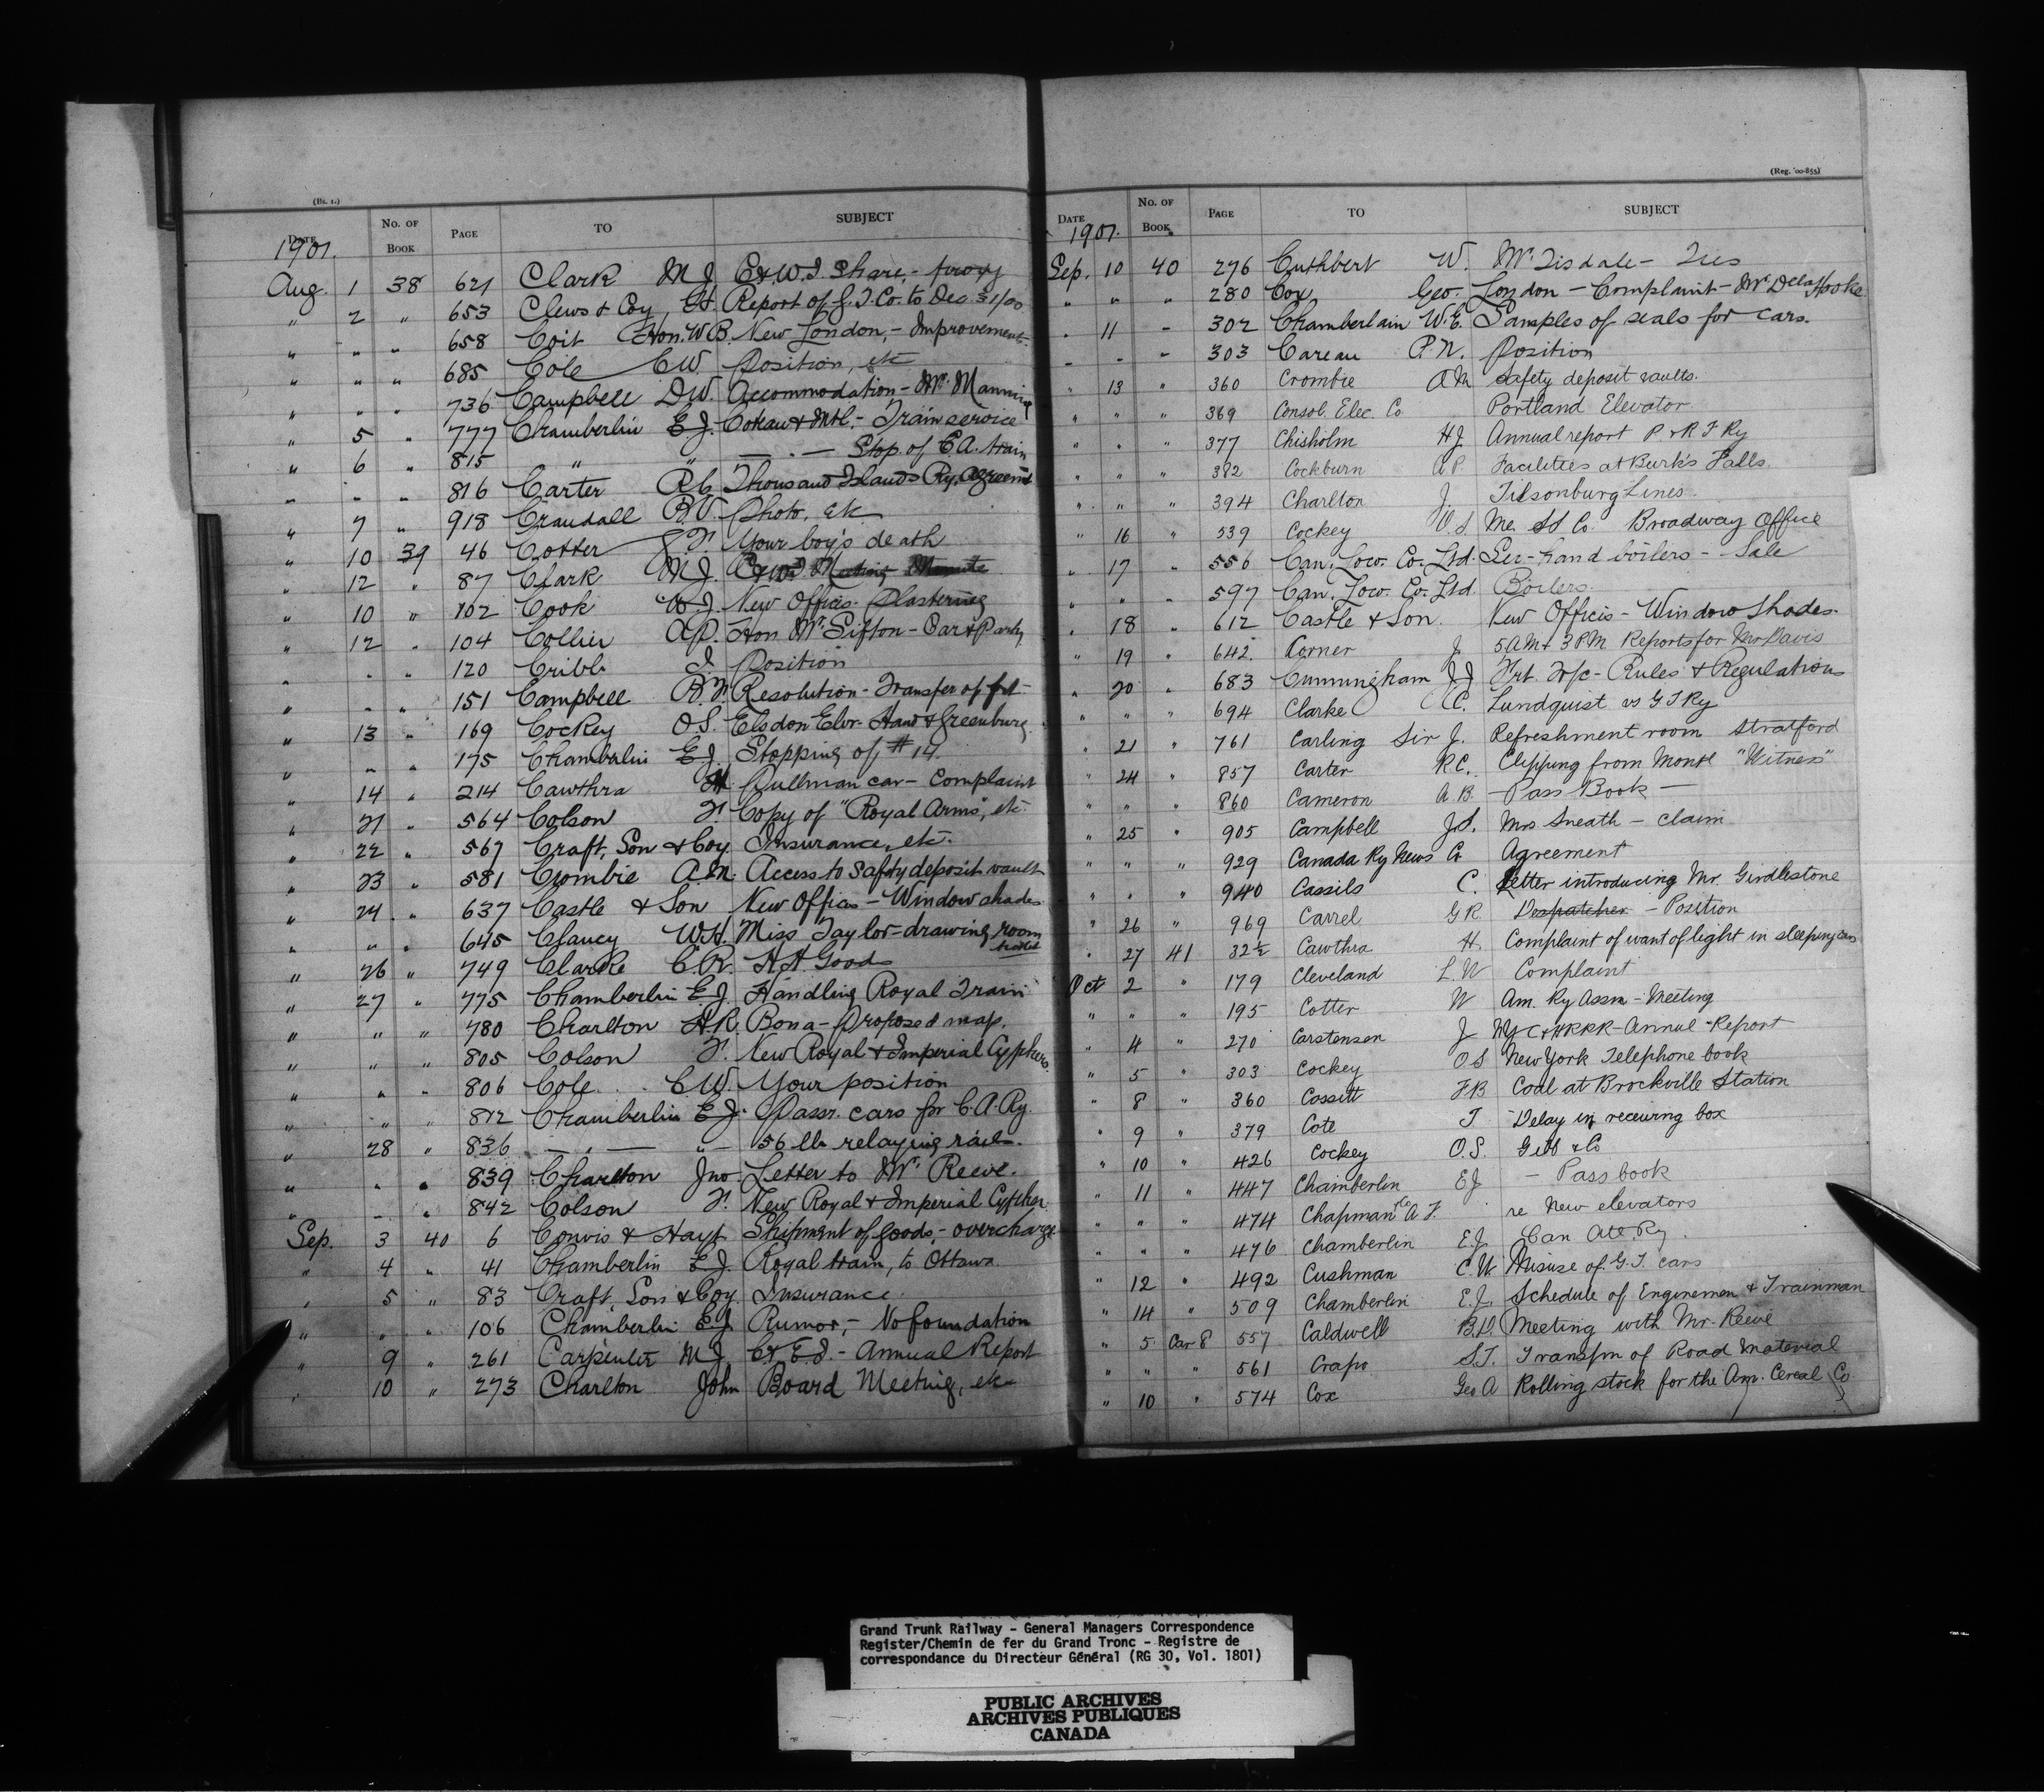 (Bk. 1.)
DATE No. OF BOOK PAGE TO SUBJECT
1901.
Aug. 1 38 621 Clark M J C.&W.D. Share,- proxy
" 2 " 653 Clews & Coy, H. Report of G.T.Co. to Dec 31/00
" " " 658 Coit Hon. W.B. New London,- Improvements.
" " " 685 Cole C.W. Position, etc
" " " 736 Campbell D.W. Accommodation - Mr. Manning
" 5 " 777 Chamberlin E.J. Coteau & Mtl.- Train service
" 6 " 815 " " — " — Stop. of C.A. train
" " " 816 Carter R.C. Thousand Islands Ry. Agreemt
" 7 " 918 Crandall B.V. Photo, etc
" 10 39 46 Cotter J.F. Your boy's death
" 12 " 87 Clark M.J. Meeting Minute
" 10 " 102 Cook W.J. New Offices. Plastering
" 12 " 104 Collier A.P. Hon Mr. Sifton - Car & Party
" " " 120 Cribb J. Position
" " " 151 Campbell B.F. Resolution - Transfer of frt
" 13 " 169 Cockey O.S. Elsdon Elvr. Haw & Greenburg
" " " 175 Chamberlin E.J. Stopping of #14
" 14 " 214 Cawthra H. Pullman car - Complaint
" 21 " 564 Colson F. Copy of "Royal Arms", etc
" 22 " 567 Craft, Son & Coy. Insurance, etc.
" 23 " 581 Crombie A.M. Access to Safty deposit vault
" 24 " 637 Castle & Son New Offices - Window shades
" " " 645 Clancy W.H. Miss Taylor - drawing room
" 26 " 749 Clarke C.R. H.H. Goods
" 27 " 775 Chamberlin E.J. Handling Royal Train
" " " 780 Charlton H.R. Bona - proposed map.
" " " 805 Colson F. New Royal & Imperial Cyphers.
" " " 806 Cole C.W. Your position
" " " 812 Chamberlin E.J. Passr. cars for C.A. Ry.
" 28 " 836 — " — " — 56 lb. relaying rails.
" " " 839 Charlton Jno. Letter to Mr. Reeve.
" " " 842 Colson F. New Royal & Imperial Cypher
Sep. 3 40 6 Convis & Hayt Shipment of goods,- overcharge
" 4 " 41 Chamberlin E.J. Royal train, to Ottawa
" 5 " 83 Craft, Son & Coy. Insurance
" " " 106 Chamberlin E.J. Rumor,- No foundation
" 9 " 261 Carpenter M.J. - Annual Report
" 10 " 273 Charlton John Board Meeting, etc
(Reg. '00-855)
DATE No. OF BOOK PAGE TO SUBJECT
1901.
Sep. 10 40 276 Cuthbert W. Mr. Tisdale - Ties
" " " 280 Cox, Geo. London - Complaint - Mr Dela Hooke
" 11 " 302 Chamberlain W.E. Samples of seals for cars.
" " " 303 Careau P.N. Position
" 13 " 360 Crombie A M Safety deposit vaults.
" " " 369 Consol. Elec. Co Portland Elevator
" " " 377 Chisholm H J Annual report P. & R F Ry
" " " 382 Cockburn A P. Facilities at Burk's Falls.
" " " 394 Charlton J. Tilsonburg Lines.
" 16 " 539 Cockey O.S. Me. SS Co. Broadway Office
" 17 " 556 Can. Loco. Co. Ltd. Sec-hand boilers - Sale
" " " 597 Can. Loco. Co. Ltd. Boilers
" 18 " 612 Castle & Son. New Offices - Window Shades.
" 19 " 642 Corner J. 5 AM & 3 PM Reports for Mr Davis
" 20 " 683 Cunningham J J Frt. Tr/c - Rules & Regulations
" " " 694 Clarke C. Lundquist vs G T Ry
" 21 " 761 Carling Sir J. Refreshment room Stratford
" 24 " 857 Carter R C. Clipping from Montl "Witness"
" " " 860 Cameron A.B. — Pass Book —
" 25 " 905 Campbell J.S. Mrs Sneath - claim
" " " 929 Canada Ry News Co Agreement
" " " 940 Cassils C. Letter introducing Mr. Girdlestone
" 26 " 969 Carrel G R Despatcher - Position
" 27 41 32½ Cawthra H. Complaint of want of light in sleeping cars
Oct 2 " 179 Cleveland L.W Complaint
" " " 195 Cotter W Am. Ry Assn - Meeting
" 4 " 270 Carstensen J NYC & HRRR - Annual Report
" 5 " 303 Cockey O S New York Telephone book
" 8 " 360 Cossitt F B Coal at Brockville Station
" 9 " 379 Cote T Delay in receiving box
" 10 " 426 Cockey O.S. & Co
" 11 " 447 Chamberlin E J — Pass book
" " " 474 Chapman Co A F. re New elevators
" " " 476 Chamberlin E.J. Can Atl Ry.
" 12 " 492 Cushman C.W Misuse of G.T. cars
" 14 " 509 Chamberlin E.J. Schedule of Enginemen & Trainman
" 5 Car 8 557 Caldwell B.D. Meeting with Mr. Reeve
" " " 561 Crapo S.T. Transfm of Road Material
" 10 " 574 Cox Geo A Rolling stock for the Am. Cereal Co
Grand Trunk Railway - General Managers Correspondence
Register/Chemin de fer du Grand Tronc - Registre de
correspondance du Directeur Général (RG 30, Vol. 1801)
PUBLIC ARCHIVES
ARCHIVES PUBLIQUES
CANADA